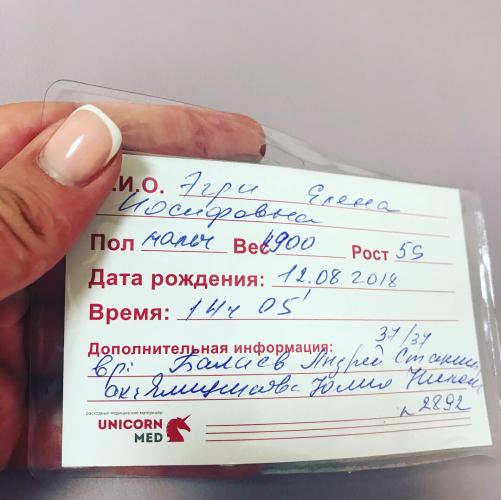 .И.О. Эгри Елена
Иосифовна
Пол мальч Вес 4900 Рост 55
Дата рождения: 12.08.2018
Время: 14ч 05'
Дополнительная информация: 37/37
вр: Балаев Андрей
Юлия
2892
расходные медицинские материалы
UNICORN
MED